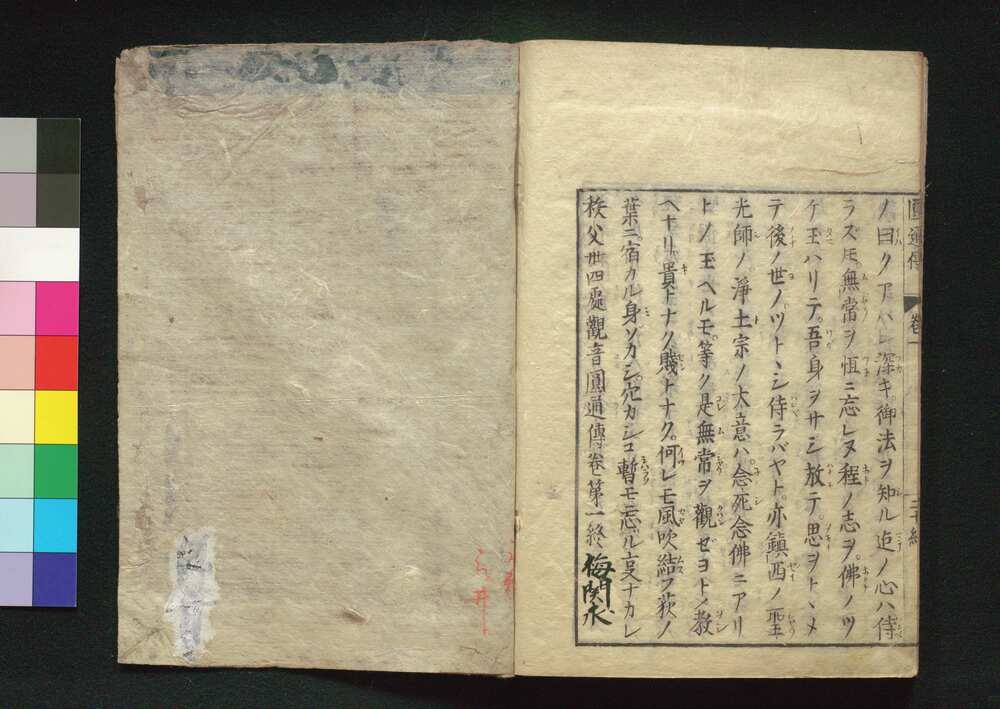 圓通傳 卷一
ノ曰クアハレ深キ御法ヲ知ル迠ノ心ハ侍
ラズ𪜈無常ヲ恒ニ忘レヌ程ノ志ヲ佛ノツ
ケ玉ハリテ吾身ヲサシ放テ思ヲトヽメ
テ後ノ世ノツトヽシ侍ラバヤト亦鎮西ノ聖
光師ノ浄土宗ノ大意ハ念死念佛ニアリ
トノ玉ヘルモ等ク是無常ヲ觀ゼヨトノ教
ヘナリ貴トナク賤トナク何レモ風吹結フ荻ノ
葉ニ宿カル身ソカシ穴カシコ暫モ忘ルヿナカレ
秩父丗四處觀音圓通傳卷第一終
梅関水